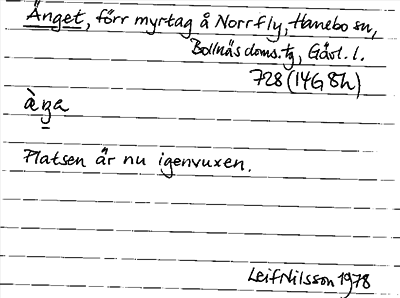 Änget, förr myrtag å Norrfly, Hanebo sn,
Bollnäs doms.tg, Gävl. l.
728 (14G 8h)
àŋa
Platsen är nu igenvuxen.
Leif Nilsson 1978